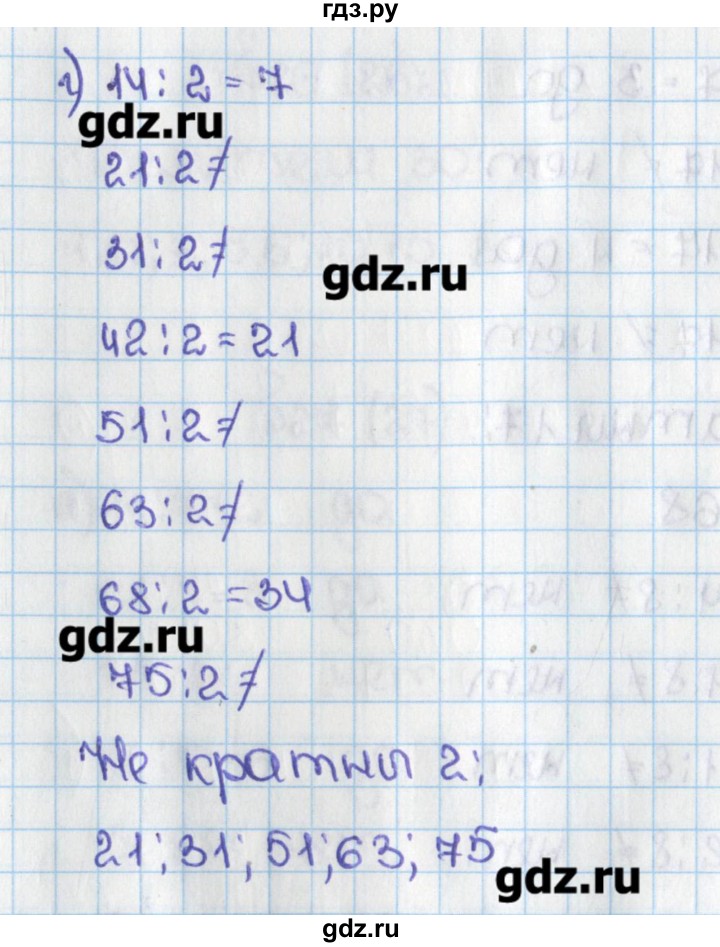 гдз.ру
г) 14 : 2 = 7
gdz.ru
21 : 2 ≠
31 : 2 ≠
gdz.ru
42 : 2 = 21
51 : 2 ≠
63 : 2 ≠
68 : 2 = 34
gdz.ru
75 : 2 ≠
Не кратны 2:
21; 31; 51; 63; 75
gdz.ru
gdz.ru